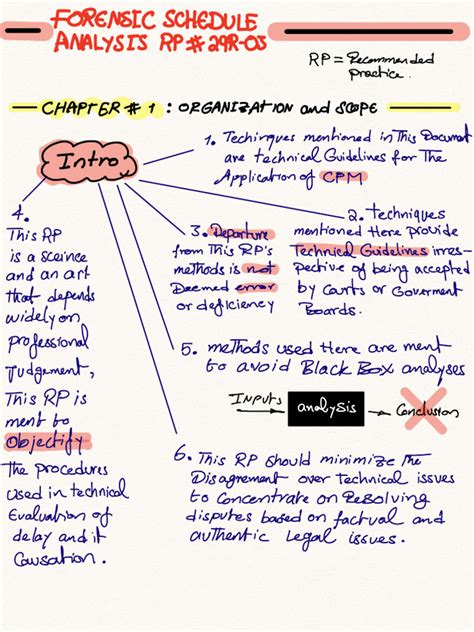 FORENSIC SCHEDULE
ANALYSIS RP# 29R-03
RP = Recommended
practice.
CHAPTER # 1 : ORGANIZATION and SCOPE
Intro
1. Techinques mentioned in This Document
are technical Guidelines for The
Application of CPM
2. techniques
mentioned Here provide
Technical Guidelines irres-
pective of being accepted
by Courts or Goverment
Boards.
3. Departure
from This RP's
methods is not
Deemed error
or deficiency
4.
This RP
is a sceince
and an art
that depends
widely on
professional
Judgement,
This RP is
ment to
Objectify
The procedures
used in technical
Evaluation of
delay and it
Causation.
5. methods used Here are ment
to avoid Black Box analyses
Inputs
analysis
Conclusion
6. This RP should minimize The
Disagrement over technical issues
to Concentrate on Resolving
disputes based on factual and
authentic Legal issues.